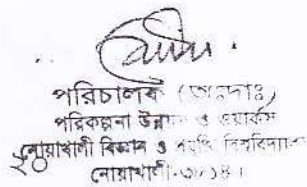 পরিচালক (অঃদাঃ)
পরিকল্পনা উন্নয়ন ও ওয়ার্কস
নোয়াখালী বিজ্ঞান ও প্রযুক্তি বিশ্ববিদ্যালয়
নোয়াখালী-৩৮১৪।